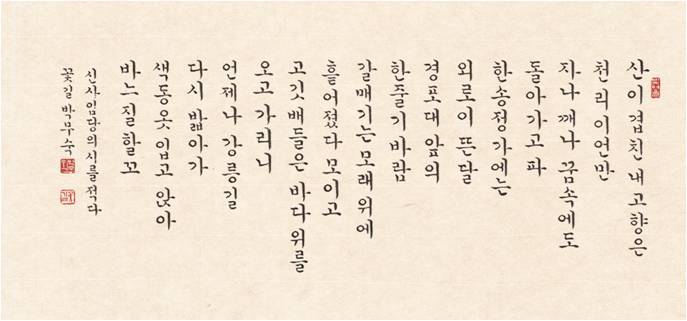 산이 겹친 내 고향은
천리이언만
자나 깨나 꿈속에도
돌아가고파
한송정 가에는
외로이 뜬 달
경포대 앞의
한줄기 바람
갈매기는 모래 위에
흩어졌다 모이고
고깃배들은 바다 위를
오고 가리니
언제나 강릉길
다시 밟아가
색동옷 입고 앉아
바느질할꼬
신사임당의 시를 적다
꽃길 박무숙